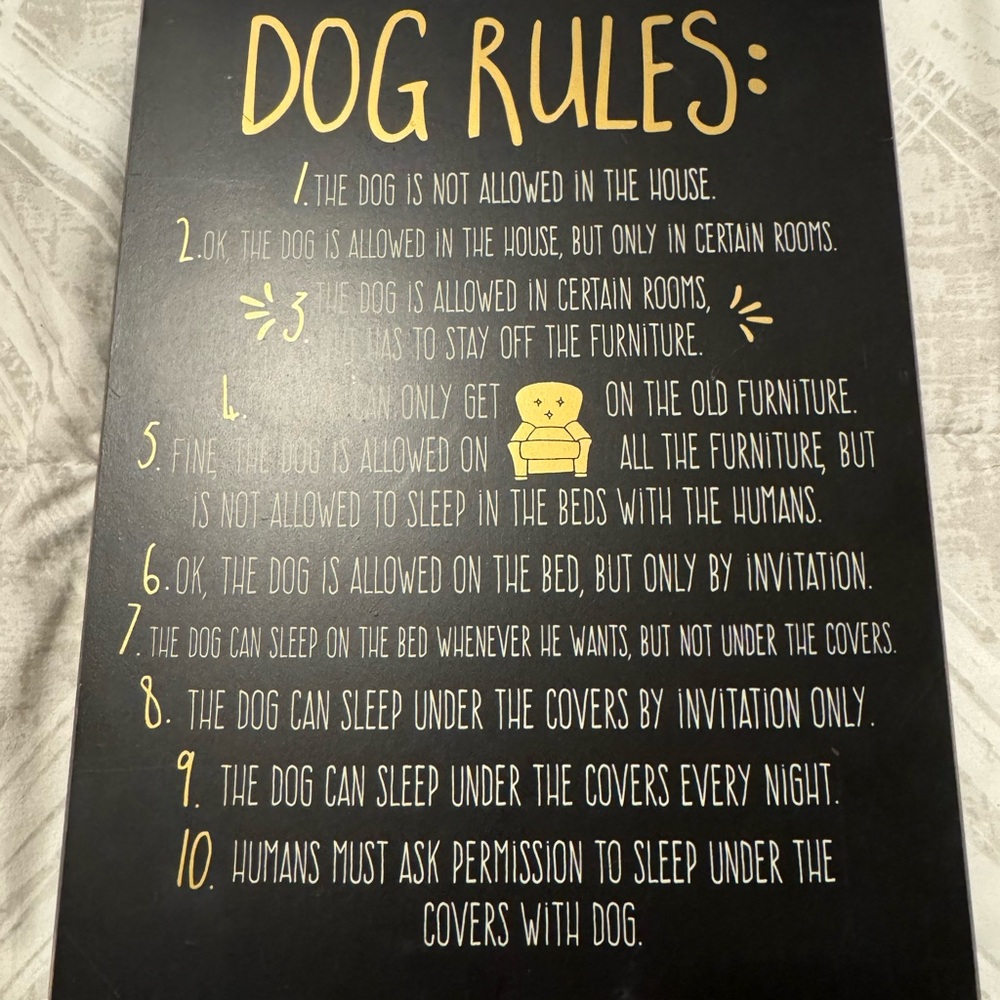 DOG RULES:
1. THE DOG IS NOT ALLOWED IN THE HOUSE.
2. OK, THE DOG IS ALLOWED IN THE HOUSE, BUT ONLY IN CERTAIN ROOMS.
3. THE DOG IS ALLOWED IN CERTAIN ROOMS,
HAS TO STAY OFF THE FURNITURE.
4. CAN ONLY GET ON THE OLD FURNITURE.
5. FINE, THE DOG IS ALLOWED ON ALL THE FURNITURE, BUT
IS NOT ALLOWED TO SLEEP IN THE BEDS WITH THE HUMANS.
6. OK, THE DOG IS ALLOWED ON THE BED, BUT ONLY BY INVITATION.
7. THE DOG CAN SLEEP ON THE BED WHENEVER HE WANTS, BUT NOT UNDER THE COVERS.
8. THE DOG CAN SLEEP UNDER THE COVERS BY INVITATION ONLY.
9. THE DOG CAN SLEEP UNDER THE COVERS EVERY NIGHT.
10. HUMANS MUST ASK PERMISSION TO SLEEP UNDER THE
COVERS WITH DOG.